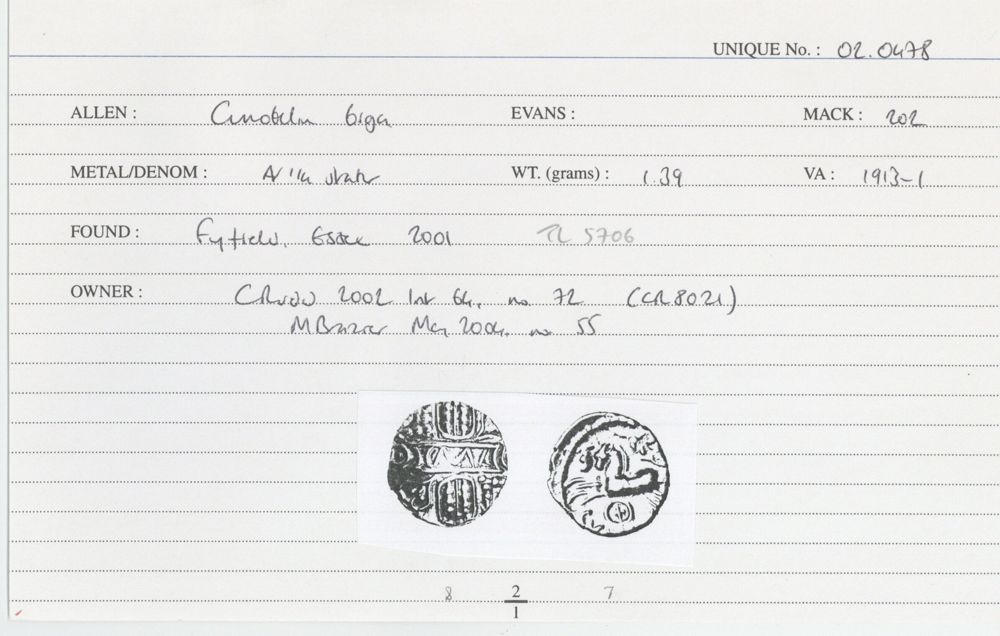 UNIQUE No. : 02.0478
ALLEN : Cunobelin biga EVANS : MACK : 202
METAL/DENOM : AV 1/4 stater WT. (grams) : 1.39 VA : 1913-1
FOUND : Fyfield, Essex 2001 TL 5706
OWNER : CRudd 2002 list 64, no 72 (CR8021)
M Brazier May 2004, no 55
8 2 7
1